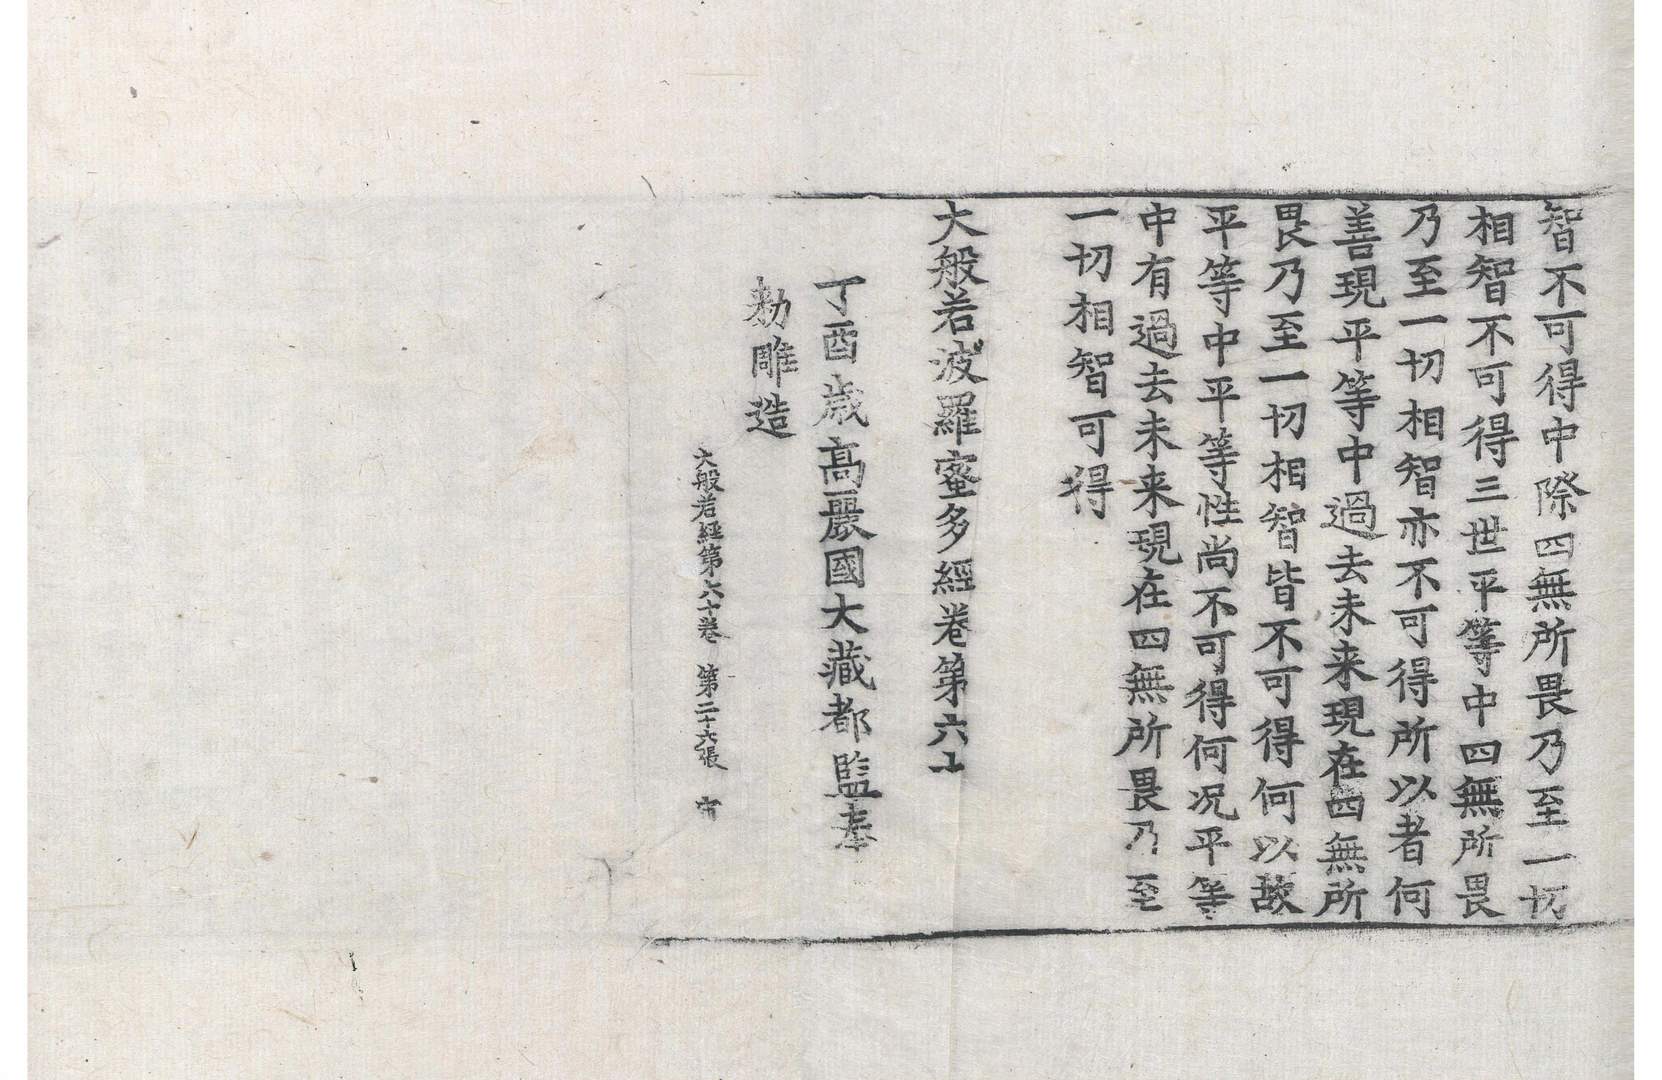 智不可得中際四無所畏乃至一切
相智不可得三世平等中四無所畏
乃至一切相智亦不可得所以者何
善現平等中過去未来現在四無所
畏乃至一切相智皆不可得何以故
平等中平等性尚不可得何况平等
中有過去未来現在四無所畏乃至
一切相智可得
大般若波羅蜜多經卷第六十
丁酉歲高麗國大藏都監奉
勑雕造
大般若經第六十卷 第二十六張